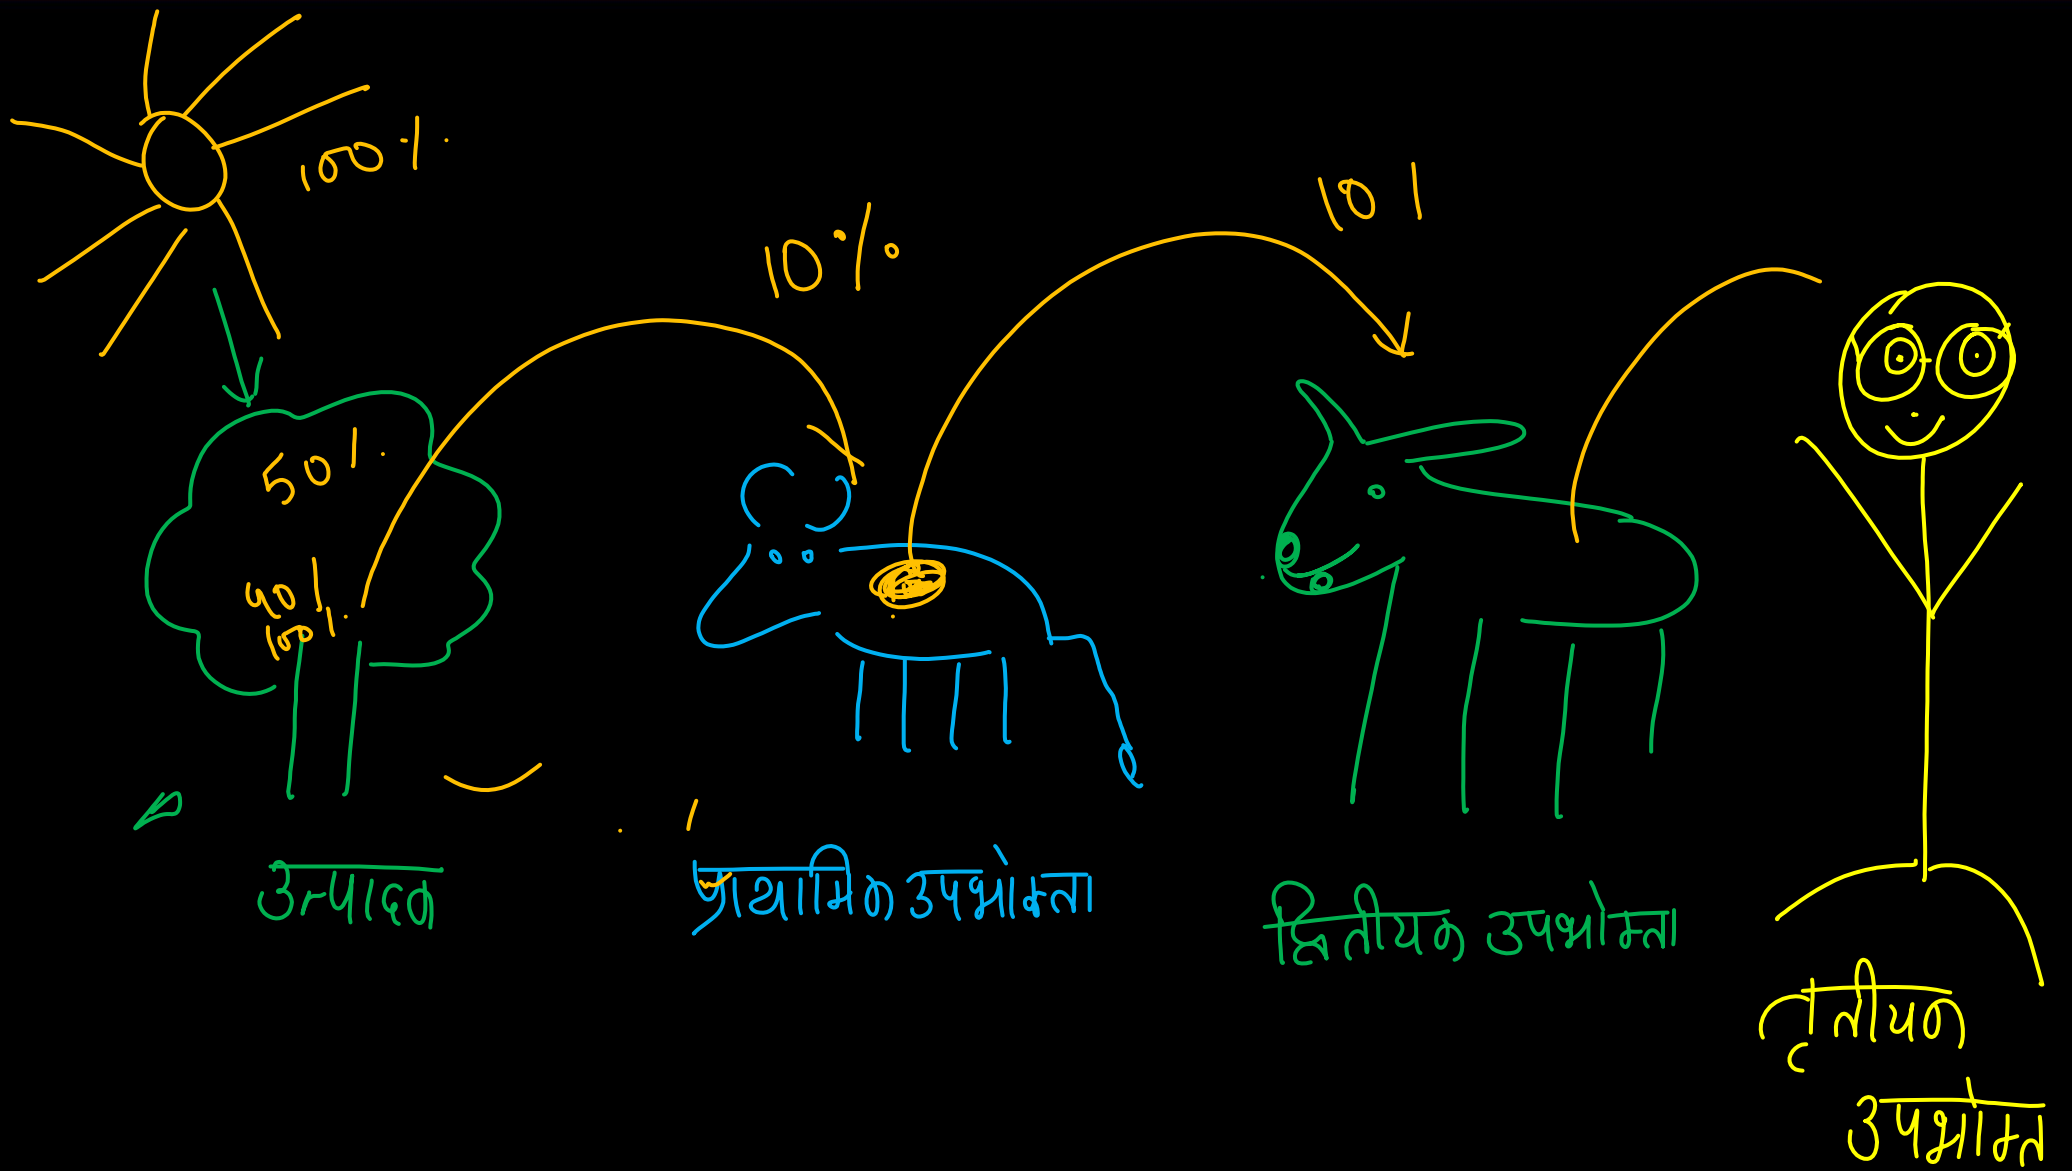 100%
10%
10 |
50 %
90 |
100 %
उत्पादक
प्राथमिक उपभोक्ता
द्वितीयक उपभोक्ता
तृतीयक
उपभोक्त